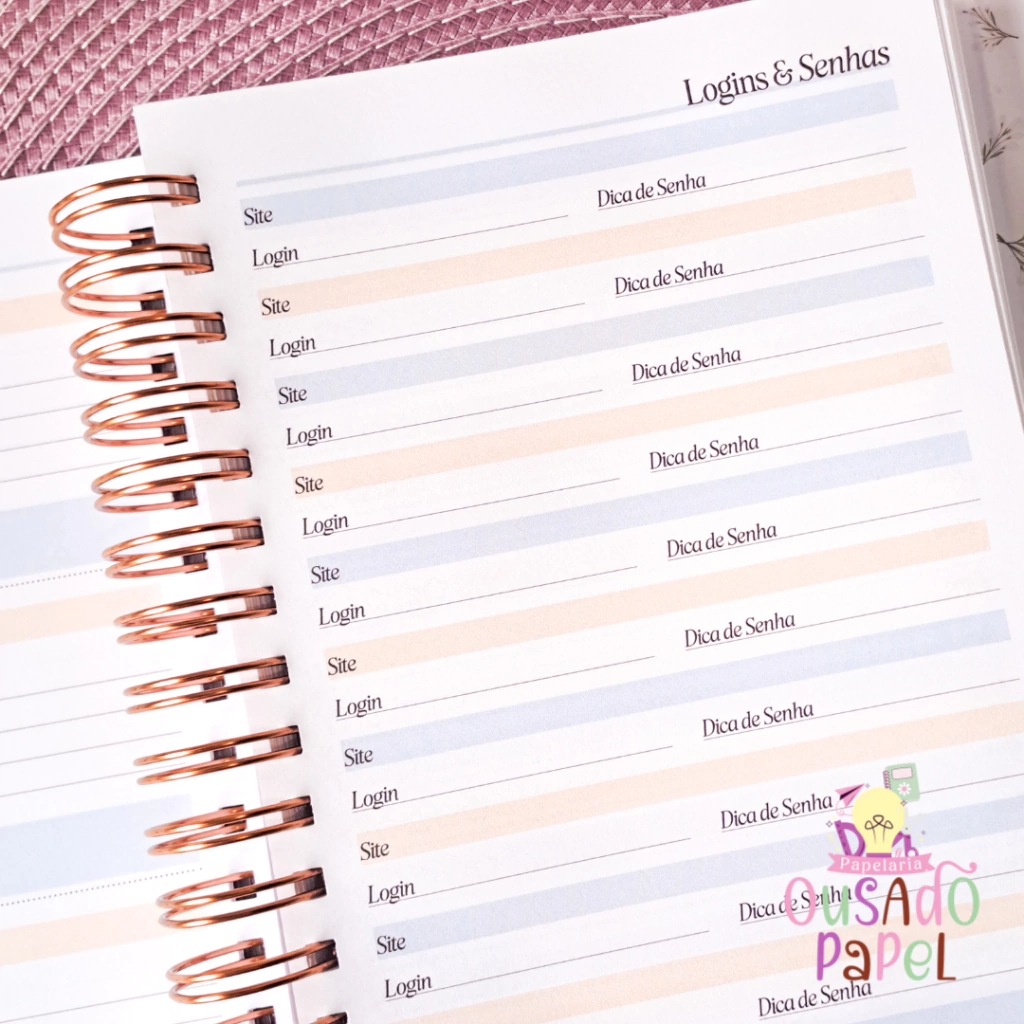 Logins & Senhas
Site
Login Dica de Senha
Site
Login Dica de Senha
Site
Login Dica de Senha
Site
Login Dica de Senha
Site
Login Dica de Senha
Site
Login Dica de Senha
Site
Login Dica de Senha
Site
Login Dica de Senha
Site
Login Dica de Senha
Dica de Senha
Papelaria
OUSADO
PAPEL